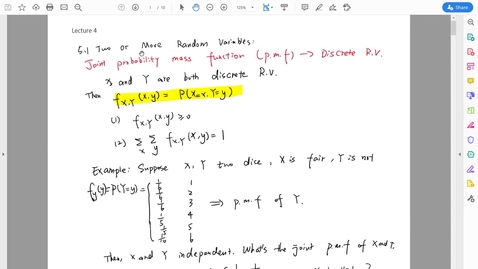 1 / 10
Lecture 4
5.1 Two or More Random Variables:
Joint probability mass function (p.m.f) → Discrete R.V.
X and Y are both discrete R.V.
Then f_{X,Y}(x,y) = P(X=x, Y=y)
(1) f_{X,Y}(x,y) ≥ 0
(2) Σ_x Σ_y f_{X,Y}(x,y) = 1
Example: Suppose X, Y two dice, X is fair, Y is not
f_Y(y) = P(Y=y) = { 1
2
3 ⇒ p.m.f of Y.
4
5
1/10 6
Then, X and Y independent. What's the joint p.m.f of X and Y.